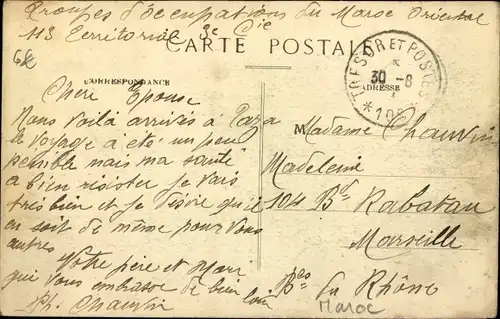 Troupes d'occupations du Maroc Oriental
113 Territorial 3e Cie
CARTE POSTALE
68
CORRESPONDANCE
ADRESSE
TRESOR ET POSTES
30 -8
Chere Epouse
Nous voilà arrivés à Taza
le voyage a été un peu
penible mais ma santé
a bien résister je vais
tres bien et je desire qu'il
en soit de même pour vous
autres
Votre père et Mari
qui vous embrasse de bien loin
Ph. Chauvin
Madame Chauvin
Madeleine
104 Bd Rabatau
Marseille
Bes du Rhône
Maroc